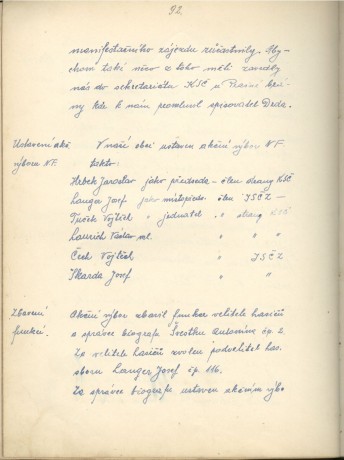 92.
manifestačního zájezdu zúčastnily. Aby-
chom také něco z toho měli zavedly
nás do sekretariátu KSČ u Prašné brá-
ny kde k nám promluvil spisovatel Drda.
Ustavení akč. V naší obci ustaven akční výbor N.F.
výboru N.F. takto:
Hrbek Jaroslav jako předseda – člen strany KSČ
Langer Josef jako místopředs. člen JSČZ –
Tuček Vojtěch " jednatel " strany KSČ
Laurich Václav ml. " " "
Čech Vojtěch " JSČZ
Škarda Josef " "
Zbavení Akční výbor zbavil funkce velitele hasičů
funkcí. a správce biografu Švestku Antonína čp. 2.
Za velitele hasičů zvolen podvelitel has.
sboru Langer Josef čp. 116.
Za správce biografu ustaven akčním výbo